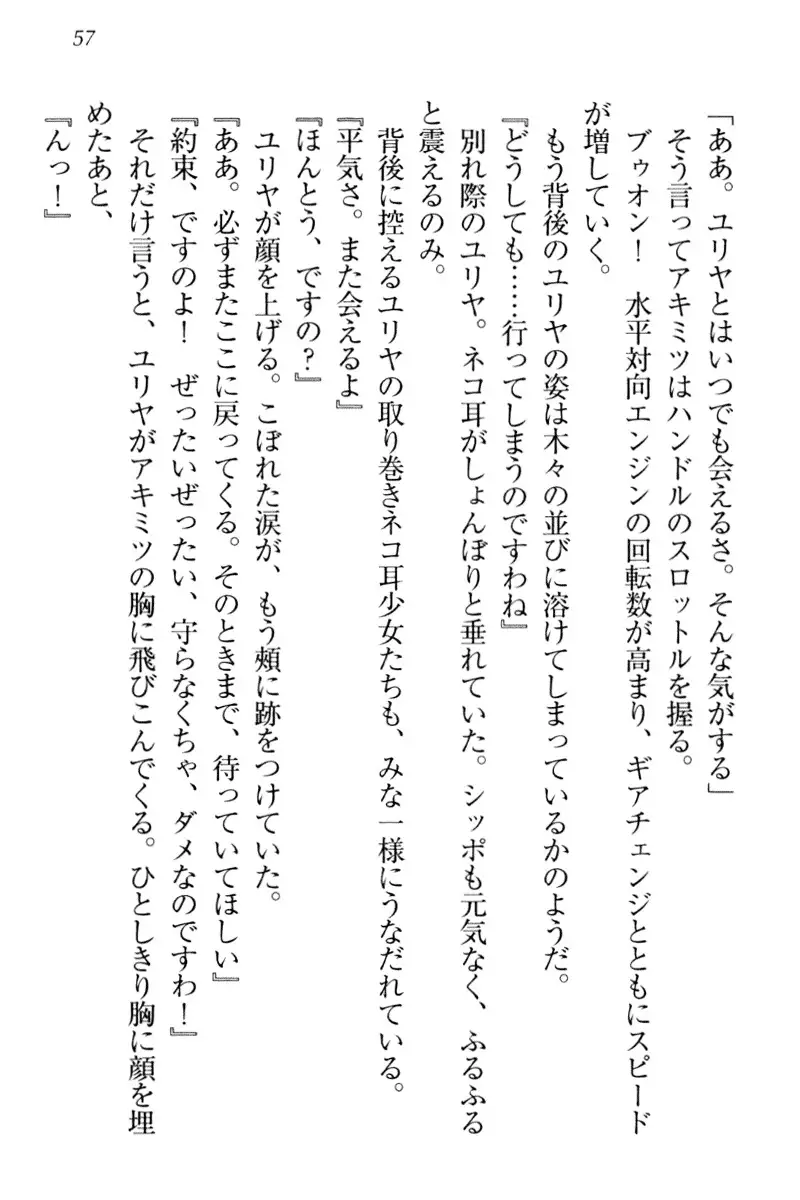 57
「ああ。ユリヤとはいつでも会えるさ。そんな気がする」
そう言ってアキミツはハンドルのスロットルを握る。
ブゥオン！　水平対向エンジンの回転数が高まり、ギアチェンジとともにスピード
が増していく。
もう背後のユリヤの姿は木々の並びに溶けてしまっているかのようだ。
『どうしても……行ってしまうのですわね』
別れ際のユリヤ。ネコ耳がしょんぼりと垂れていた。シッポも元気なく、ふるふる
と震えるのみ。
背後に控えるユリヤの取り巻きネコ耳少女たちも、みな一様にうなだれている。
『平気さ。また会えるよ』
『ほんとう、ですの？』
ユリヤが顔を上げる。こぼれた涙が、もう頰に跡をつけていた。
『ああ。必ずまたここに戻ってくる。そのときまで、待っていてほしい』
『約束、ですのよ！　ぜったいぜったい、守らなくちゃ、ダメなのですわ！』
それだけ言うと、ユリヤがアキミツの胸に飛びこんでくる。ひとしきり胸に顔を埋
めたあと、
『んっ！』